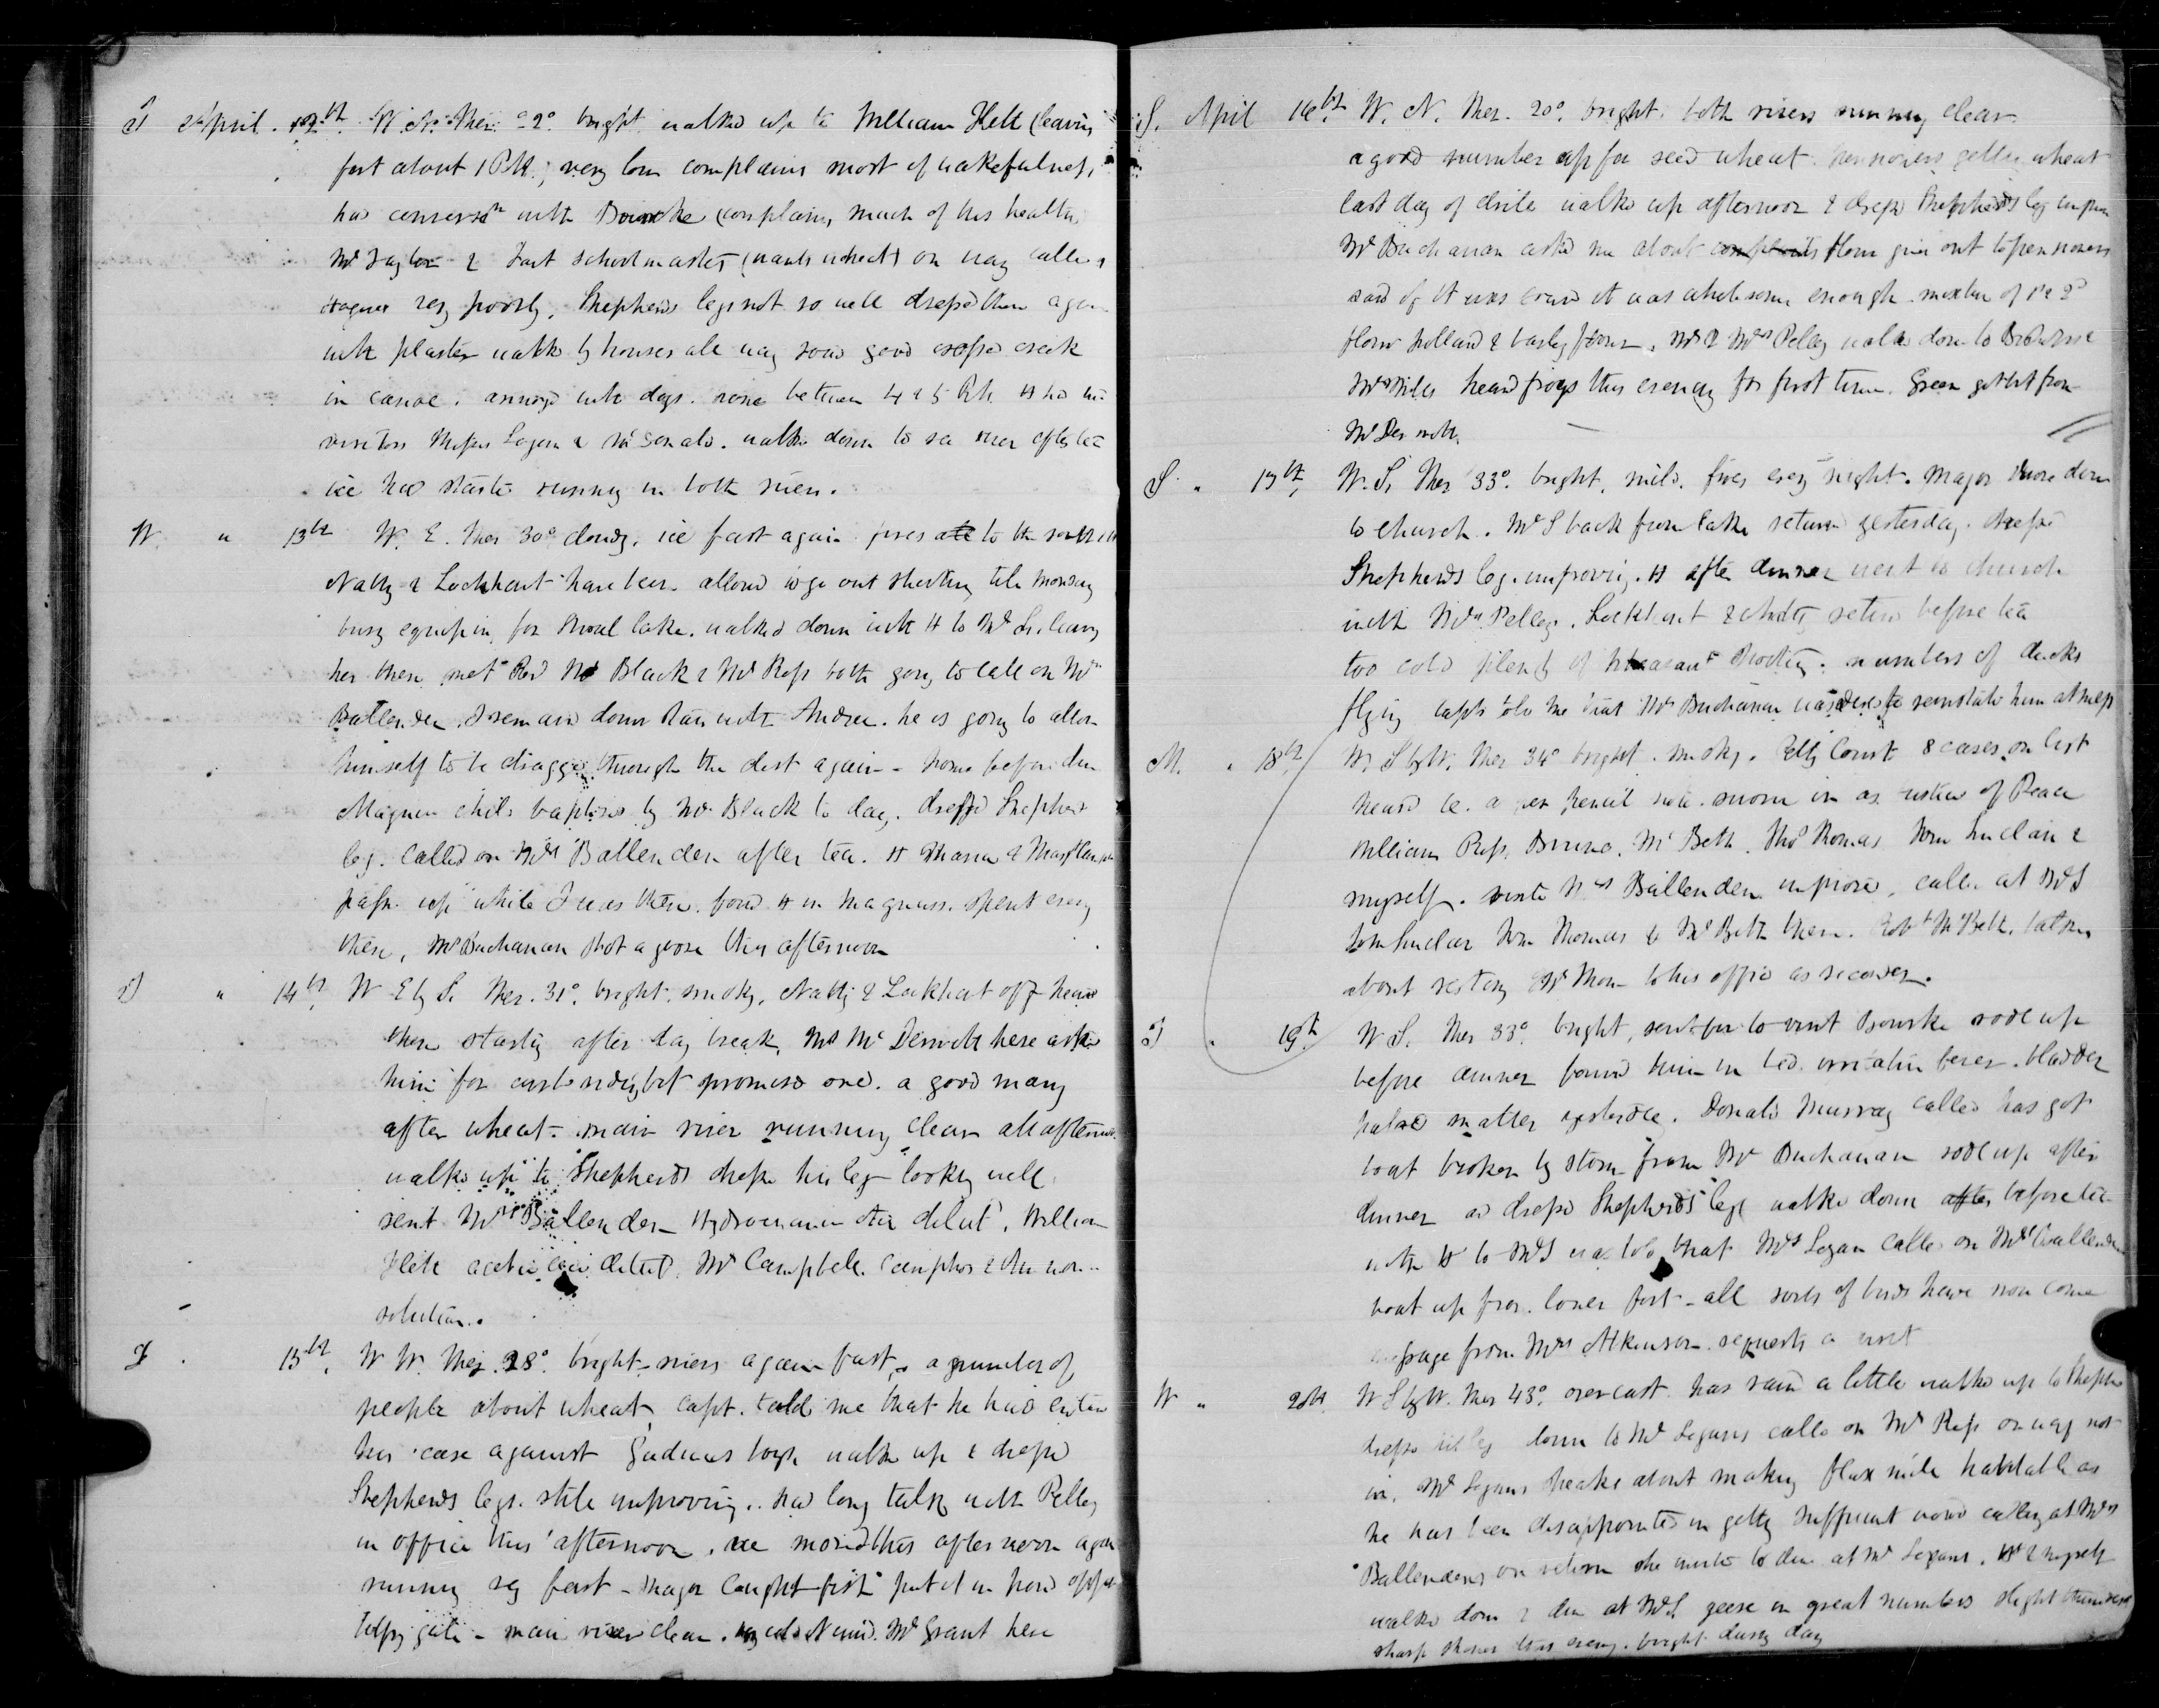 T April 12th W. N. Ther. 2° bright walked up to William Flett (leaving
fort about 1 P.M.; very low complains most of wakefulness,
had conversn with Bourke complains much of his health
Mr Taylor & Fort schoolmaster (wants wheat) on way called
very poorly, Shepherds legs not so well dressed them again
with plaster walked by houses all way good crossed creek
in canoe. annoyed with dogs. home between 4 & 5 P.M. H had
visitors Misses Logan & McDonald. walked down to see river after tea
ice had started running in both rivers.
W. " 13th W. E. Ther 30° cloudy. ice fast again fires to the south
Natty & Lockhart have been allowed to go out shooting till Monday
busy equipping for Shoal lake. walked down with H to Mr Ls. leaving
her there met Revd Mr Black & Mr Ross both going to call on Mrs
Ballenden. I remained down with Andrew. he is going to allow
himself to be dragged through the dirt again - home before dinner
Magnus child baptised by Mr Black to day. dressed Shepherds
leg. Called on Mrs Ballenden after tea. H
passed up while I was there. found H in Magnuss. spent evening
there, Mr Buchanan shot a goose this afternoon
T " 14th W E by S. Ther. 31°. bright, smoky, Natty & Lockhart off heard
them starting after day break, Mr McDermott here asked
him for promised one. a good many
after wheat - main river running clear all afternoon
walked up to Shepherds dressed his leg looking well
sent Mrs Ballenden Hydrocyanic acid dilut, William
Flett acetic acid dilut, Mr Campbell camphor &
solution.
F . 15th W W. Ther. 28°. bright - rivers again fast, a number of
people about wheat, Capt. told me that he had entered
his case against boys walked up & dressed
Shepherds legs. still improving. had long talk with Pelly
in office this afternoon. ice moved this afternoon again
running very fast - Major caught fish put it in pond opposite
gate - main river clear. very cold N wind. Mr Grant here
S. April 16th W. N. Ther. 20°. bright. both rivers running clear
a good number up for seed wheat. pensioners getting wheat
last day of drill walked up afternoon & dressed Shepherds leg
Mr Buchanan asked me about flour given out to pensioners
said if it was I said it was wholesome enough. mixture of 1st & 2d
flour & barley flour. Mr & Mrs Pelly walked down to
Mrs Mills heard frogs this evening for first time. Green got from
McDermott.
S " 17th W. S. Ther 33°. bright, mild. fires every night. Major drove down
to church. Mr S back from lake returned yesterday. dressed
Shepherds leg. improving. H after dinner went to church
with Mrs Pelly. Lockhart & Natty returned before tea
too cold plenty of pheasant shooting. numbers of ducks
flying Capt told me that Mr Buchanan was to reinstate him at mess
M. " 18th W. S by W. Ther 34° bright. smoky. Petty Court 8 cases on list
heard sworn in as Justices of Peace
William Ross, Bruce, McBeth, Thos Thomas John Sinclair &
myself. visited Mrs Ballenden improved, called at Mr Ls
John Sinclair Thomas & McBeth there. Robt McBeth talked
about restoring Mr Thom to his office as recorder.
T " 19th W S. Ther 33°. bright, sent for to visit Bourke rode up
before dinner found him in bed irritative fever. bladder
matter Donald Murray called has got
boat broken by storm from Mr Buchanan rode up after
dinner and dressed Shepherds leg walked down after before tea
with H to Mr Ls was told that Mrs Logan called on Mrs Ballenden
boat up from lower fort - all sorts of birds have now come
message from Mrs Atkinson requests a visit
W " 20th W S by W. Ther 43°. overcast. has rained a little walked up to Shepherds
dressed his leg down to Mr Logans called on Mr Ross on way not
in. Mr Logans speaks about making flax mill habitable as
he has been disappointed in getting sufficient wood calling at Mrs
Ballendens on return she invited to dine at Mr Logans. H & myself
walked down & dined at Mr Ls geese in great numbers slight thunder
sharp shower this evening. bright dusty day